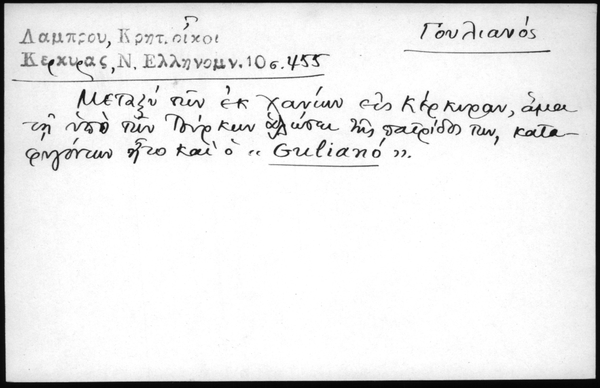 Γουλιανός
Λαμπρου, Κρητ. οἶκοι
Κερκυρας, Ν. Ελληνομν. 10 σ. 455
Μεταξύ τῶν ἐκ Χανίων εἰς Κέρκυραν, ἅμα
τῇ ὑπὸ τῶν Τούρκων ἁλώσει τῆς πατρίδος των, κατα-
φυγόντων ἦτο καὶ ὁ "Guliano".